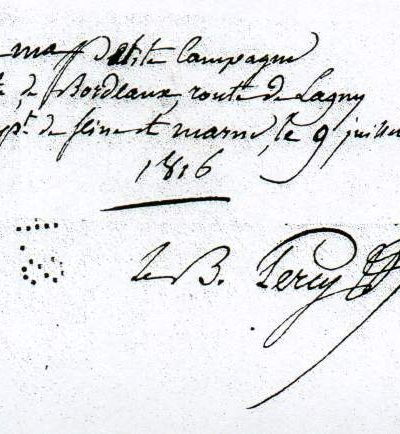 ma petite Campagne
de Bordeaux route de Lagny
pt. de seine et marne, le 9 juillet
1816
le B. Percy